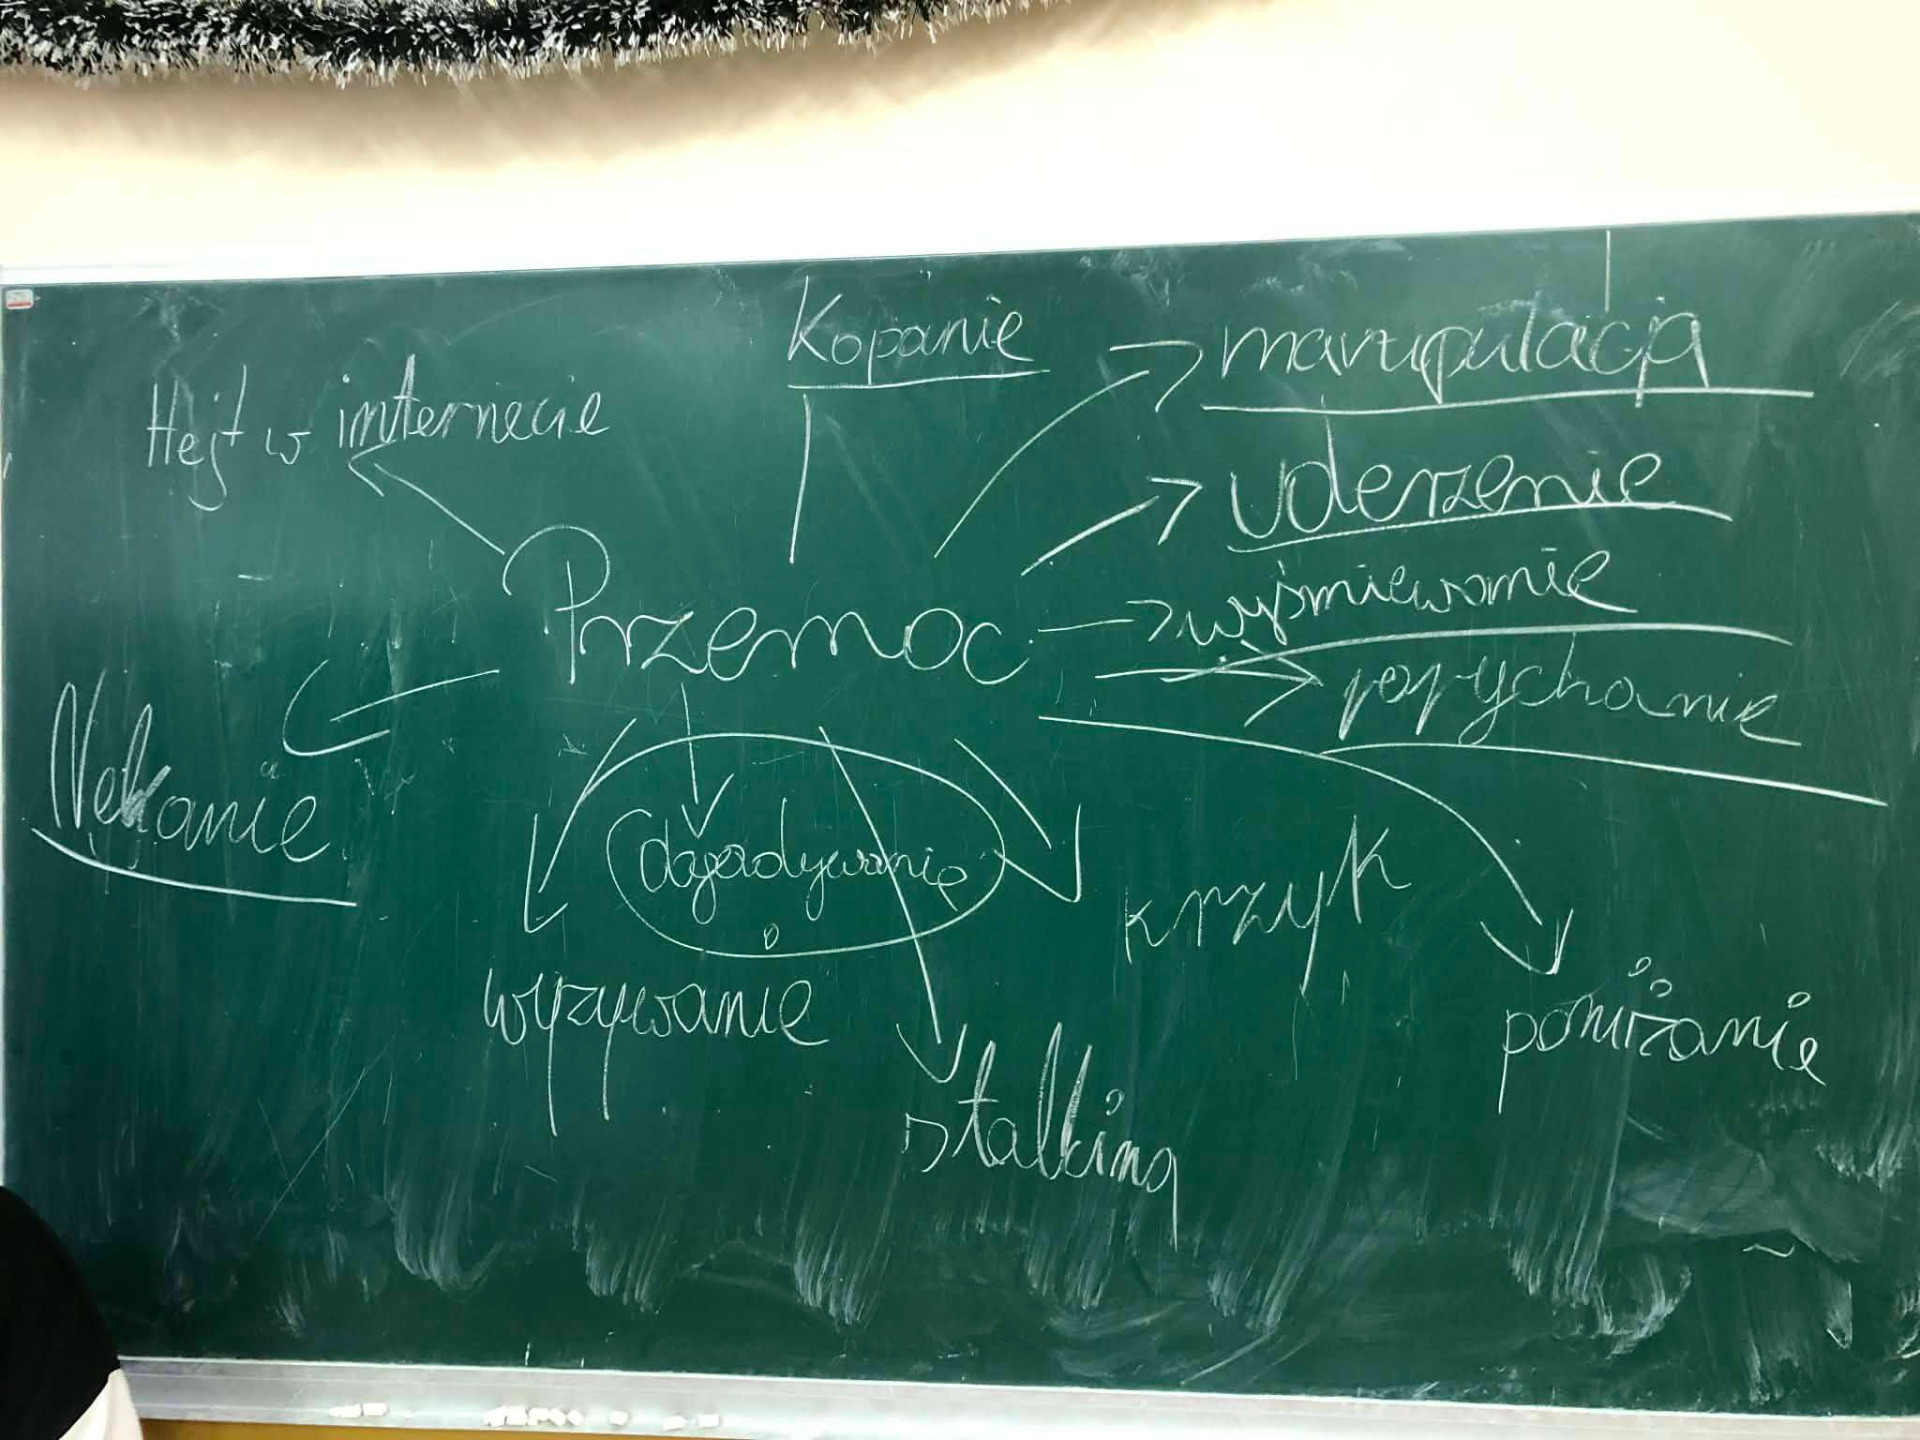 Kopanie
manipulacja
Hejt w internecie
uderzenie
wyśmiewanie
Przemoc
popychanie
Nękanie
dogadywanie
krzyk
wyzywanie
poniżanie
stalking